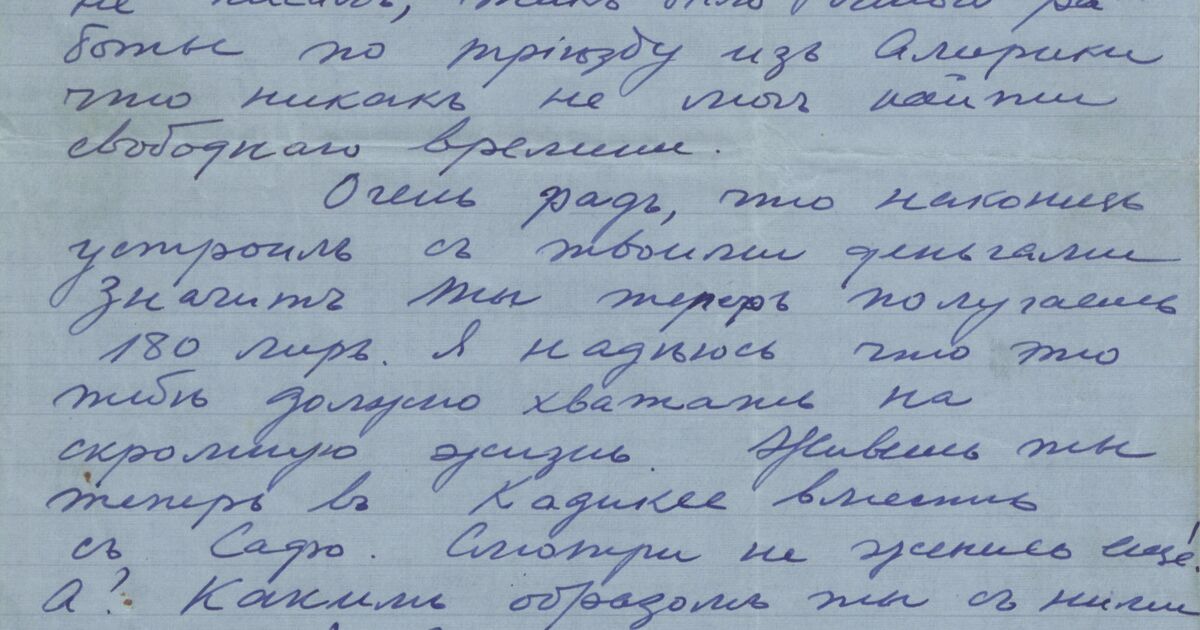 не писалъ, такъ было много ра
боты по пріѣзду изъ Америки
что никакъ не могъ найти
свободнаго времени.
Очень радъ, что наконецъ
устроилъ съ твоими деньгами
Значитъ ты теперь получаешь
180 лиръ. Я надѣюсь что это
тебѣ должно хватать на
скромную жизнь. Живешь ты
теперь въ Кадикее вместѣ
съ Сафо. Смотри не женись ещё!
А? Какимъ образомъ ты съ ними